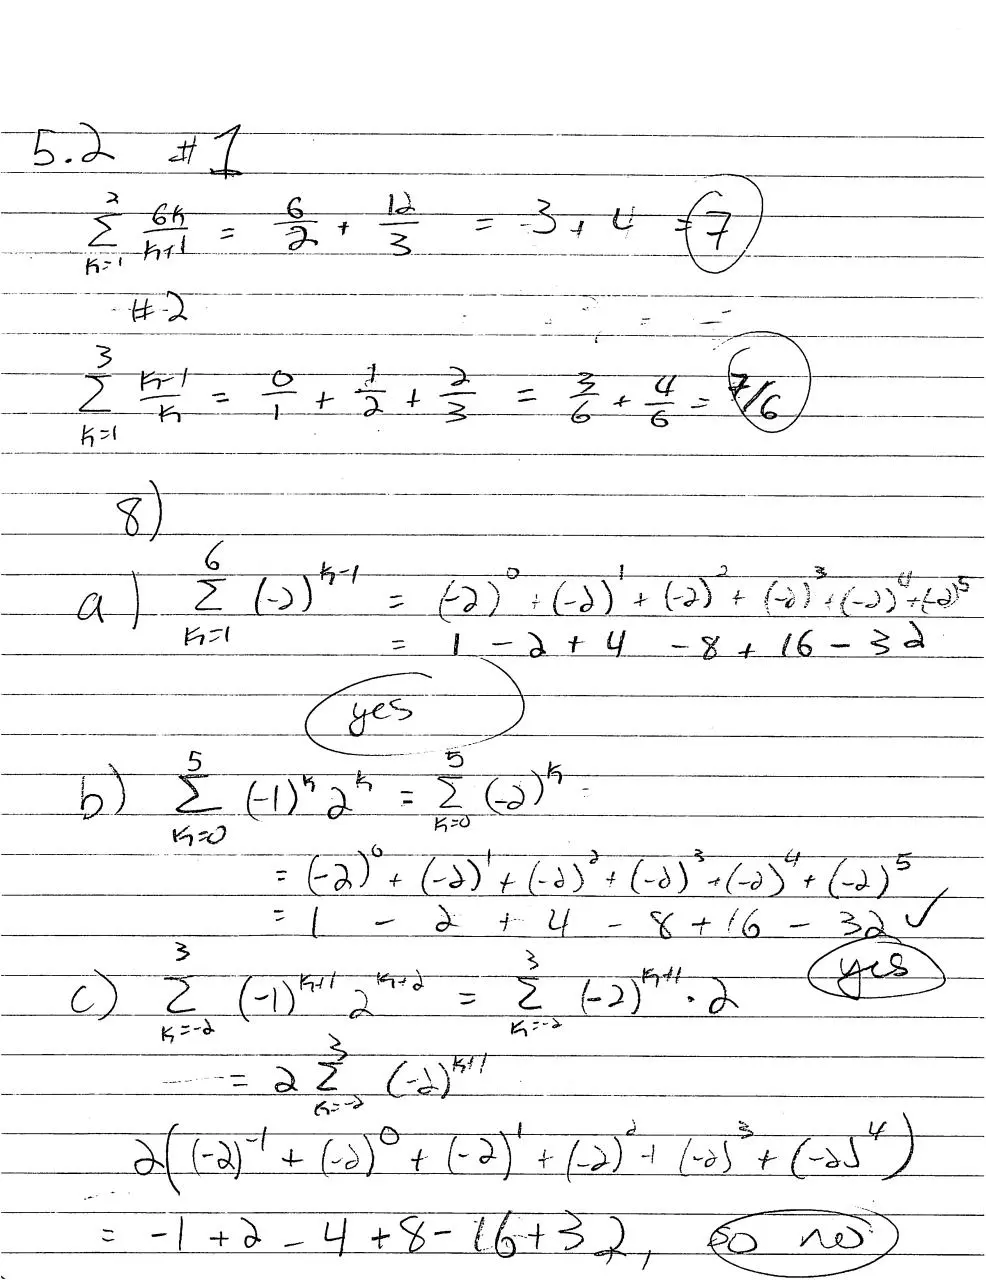 5.2 #1
∑_{k=1}^{2} 6k/(k+1) = 6/2 + 12/3 = 3 + 4 = 7
#2
∑_{k=1}^{3} (k-1)/k = 0/1 + 1/2 + 2/3 = 3/6 + 4/6 = 7/6
8)
a) ∑_{k=1}^{6} (-2)^{k-1} = (-2)^0 + (-2)^1 + (-2)^2 + (-2)^3 + (-2)^4 + (-2)^5
= 1 - 2 + 4 - 8 + 16 - 32
yes
b) ∑_{k=0}^{5} (-1)^k 2^k = ∑_{k=0}^{5} (-2)^k =
= (-2)^0 + (-2)^1 + (-2)^2 + (-2)^3 + (-2)^4 + (-2)^5
= 1 - 2 + 4 - 8 + 16 - 32 ✓
yes
c) ∑_{k=-2}^{3} (-1)^{k+1} 2^{k+2} = ∑_{k=-2}^{3} (-2)^{k+1} · 2
= 2 ∑_{k=-2}^{3} (-2)^{k+1}
2((-2)^{-1} + (-2)^0 + (-2)^1 + (-2)^2 + (-2)^3 + (-2)^4)
= -1 + 2 - 4 + 8 - 16 + 32, so no